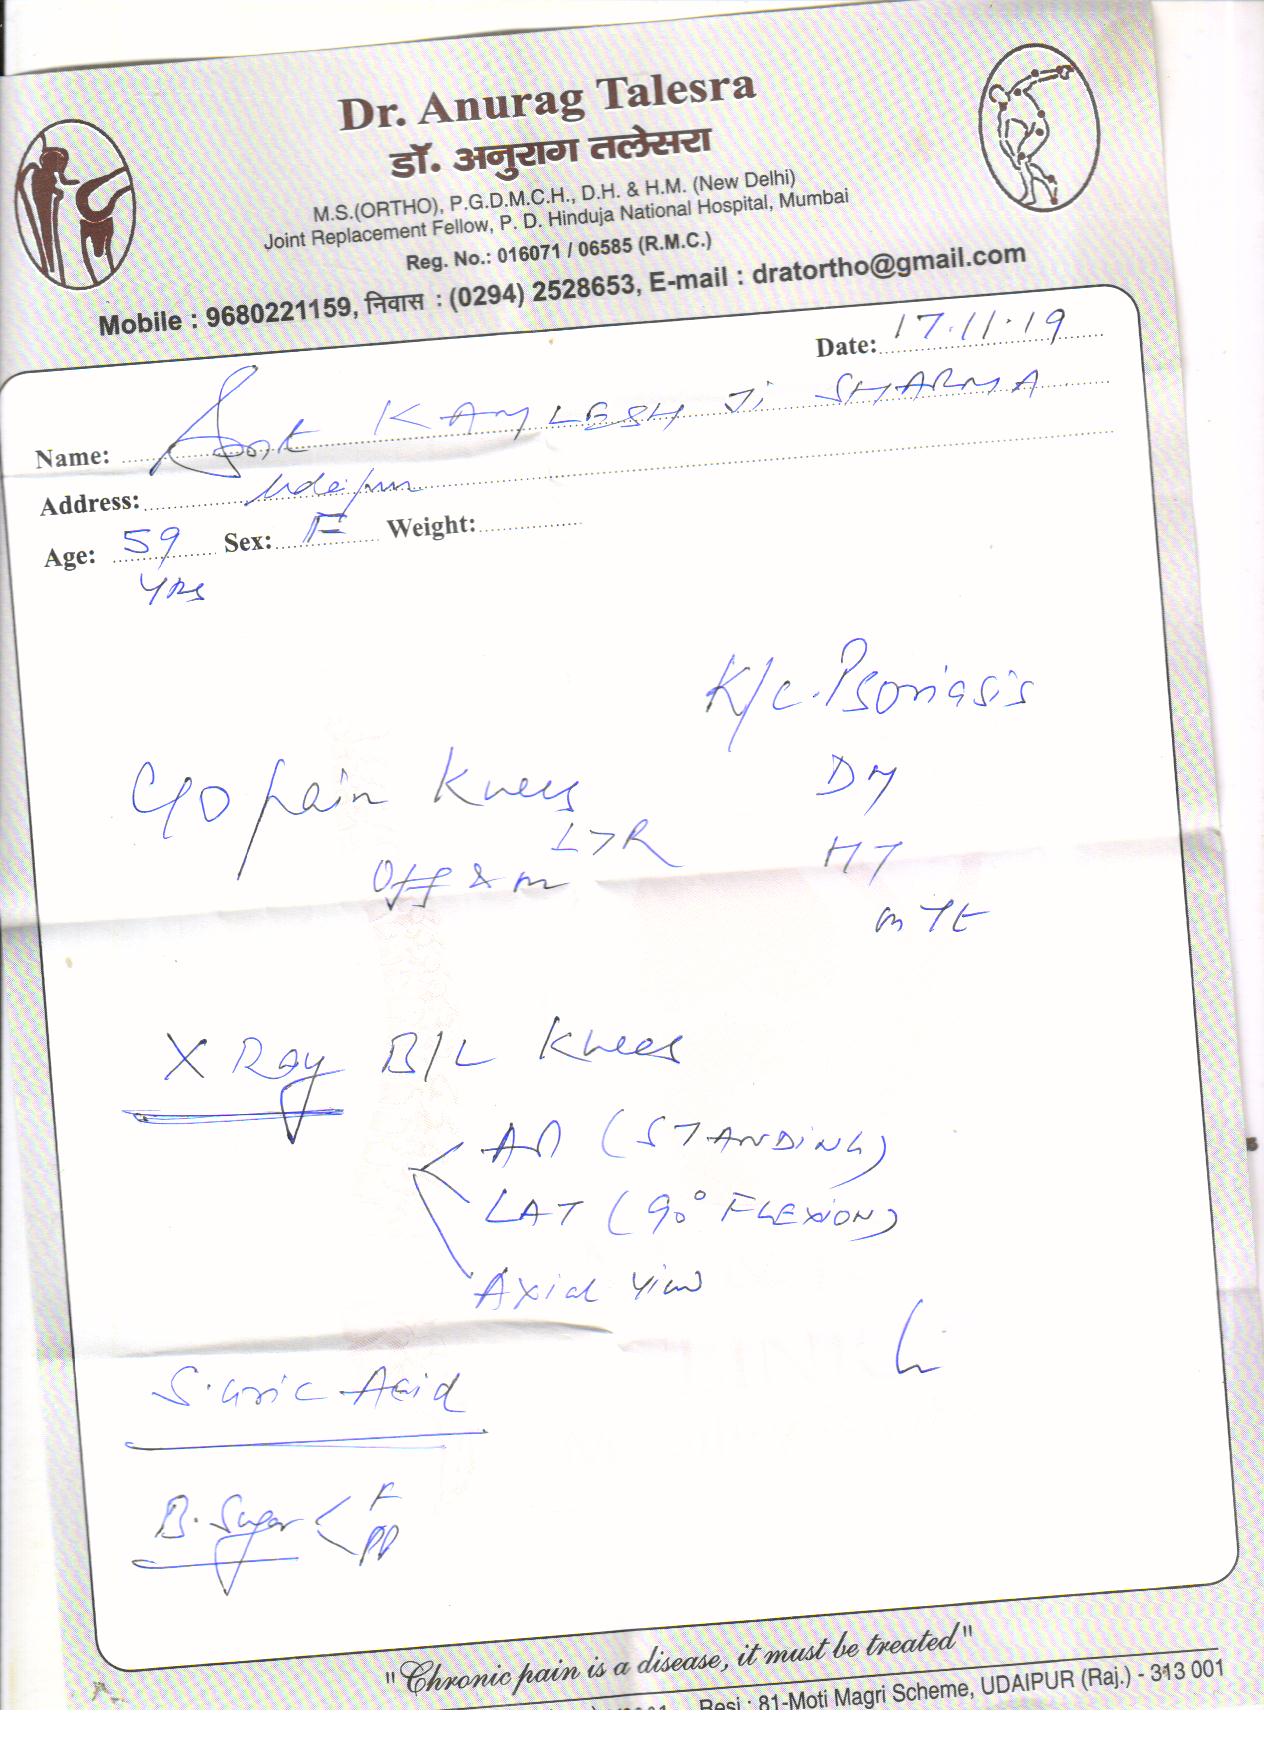 Dr. Anurag Talesra
डॉ. अनुराग तलेसरा
M.S.(ORTHO), P.G.D.M.C.H., D.H. & H.M. (New Delhi)
Joint Replacement Fellow, P. D. Hinduja National Hospital, Mumbai
Reg. No.: 016071 / 06585 (R.M.C.)
Mobile : 9680221159, निवास : (0294) 2528653, E-mail : dratortho@gmail.com
Date: 17.11.19
Name: Smt KAMLESH Ji SHARMA
Address: Udaipur
Age: 59 Sex: F Weight:
yrs
K/c. Psoriasis
DM
C/O pain Knees
L>R
HT
Off & on
on Tt
X Ray B/L Knees
AP (STANDING)
LAT (90° FLEXION)
Axial view
S. uric Acid
B. Sugar F
PP
"Chronic pain is a disease, it must be treated"
Resi : 81-Moti Magri Scheme, UDAIPUR (Raj.) - 313 001